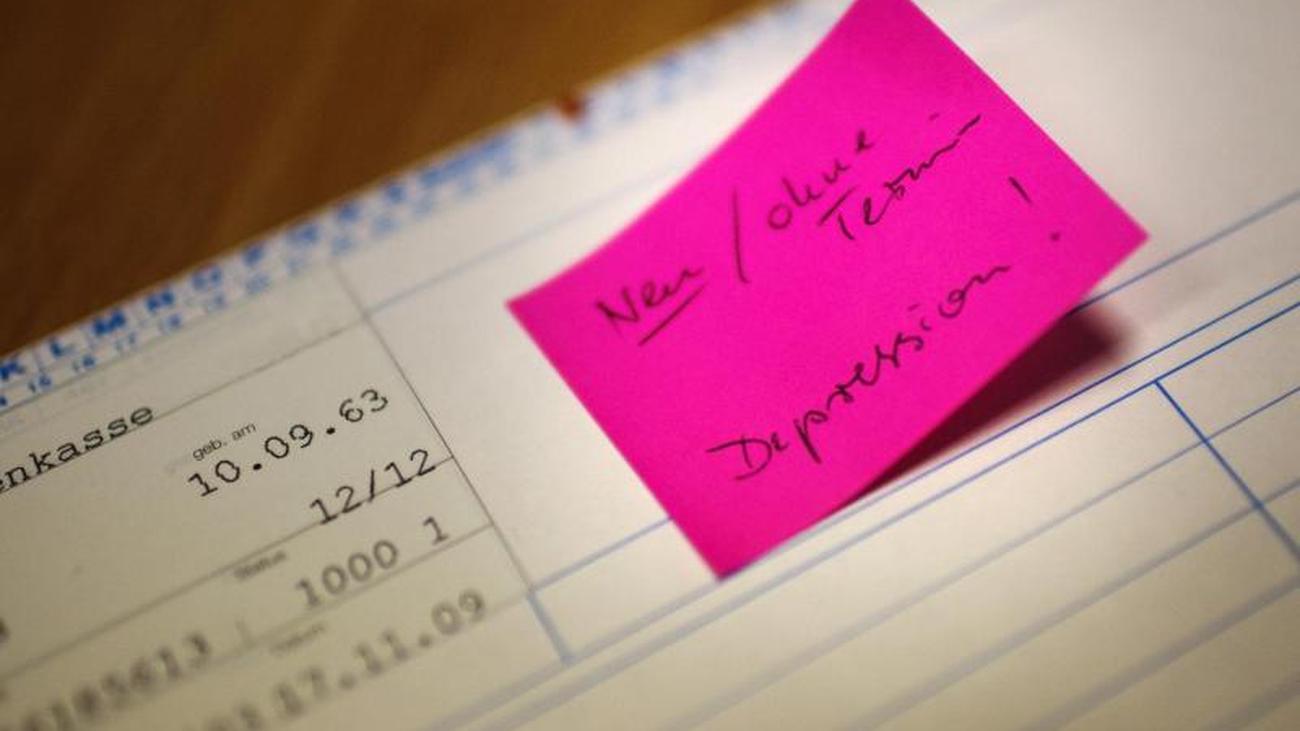 K L M N O P
15 16 17 18 19 20
enkasse
geb. am
10.09.63
12/12
Status
1000 1
Datum
17.11.09
Neu / ohne
Termin
Depression !